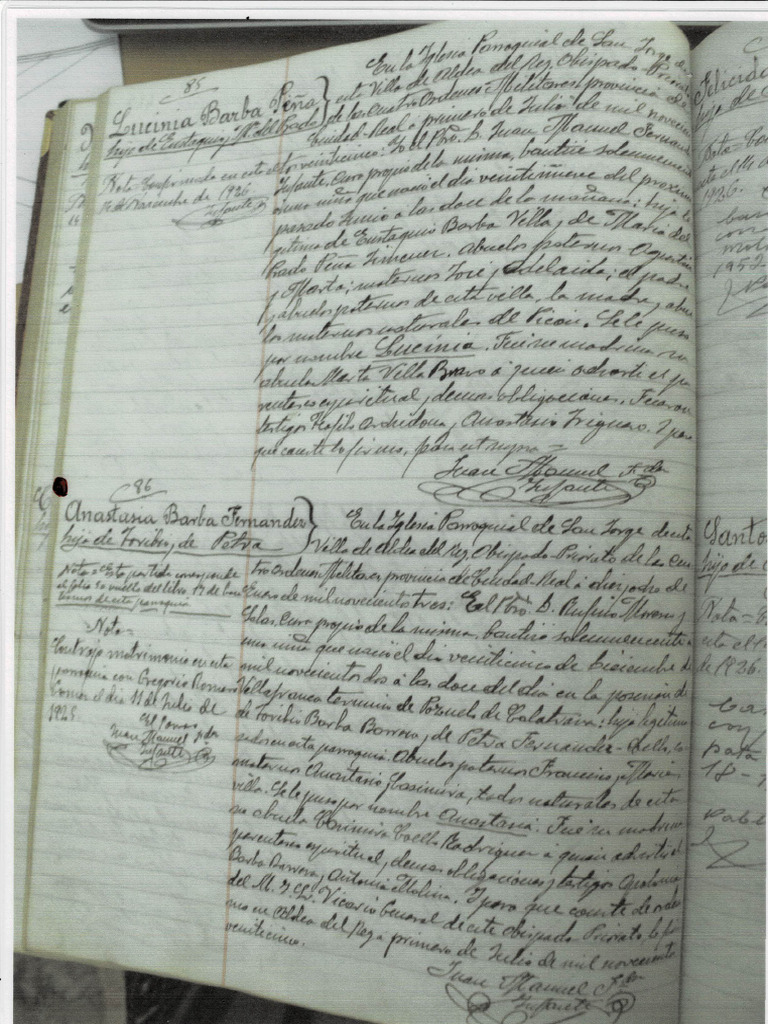 85
Lucinia Barba Peña
hija de Eustaquio y Mª del Prado
Nota = Confirmada en esta
14 de Noviembre de 1926.
Infante
En la Iglesia Parroquial de San Jorge de
esta Villa de Aldea del Rey, Obispado Priorato
de las Cuatro Ordenes Militares, provincia de
Ciudad-Real á primero de Julio de mil novecien
tos veinticinco: Yo el Pbro. D. Juan Manuel Fernandez
Infante, Cura propio de la misma, bauticé solemnemente
á una niña que nació el día veintinueve del proximo
pasado Junio á las doce de la mañana; hija le
gitima de Eustaquio Barba Villa y de Maria del
Prado Peña Jimenez. Abuelos paternos
y Marta; maternos José y Adelaida; el padre
y abuelos paternos de esta villa, la madre y abue
los maternos naturales de Picón. Se le puso
por nombre Lucinia. Fué su madrina su
abuela Marta Villa Bravo á quien advertí el pa
rentesco espiritual y demas obligaciones. Fueron
testigos Archidona y Anastasio Trigueros. Y para
que conste lo firmo, fecha ut supra =
Juan Manuel Fdez
Infante
86
Anastasia Barba Fernandez
hija de Toribio y de Petra
Nota = Esta partida corresponde
al folio 50 vuelto del libro 17 de bau
tismos de esta parroquia
Nota
Contrajo matrimonio en esta
parroquia con Gregorio Romero
el dia 11 de Julio de
1925.
El Parroco
Juan Manuel Fdez
Infante
En la Iglesia Parroquial de San Jorge de esta
Villa de Aldea del Rey, Obispado-Priorato de las Cua
tro Ordenes Militares, provincia de Ciudad-Real á dos de
Enero de mil novecientos tres: El Pbro. D. Rufino Moreno y
Salas, Cura propio de la misma, bautizó solemnemente á
una niña que nació el dia veinticinco de Diciembre de
mil novecientos dos á las doce del dia en la posesión de
Villafranca termino de Pozuelo de Calatrava; hija legitima
de Toribio Barba Barrera y de Petra Fernandez-Coello, ca
sados en esta parroquia. Abuelos paternos Francisco y Maria;
maternos Anastasio y Casimira, todos naturales de esta
villa. Se le puso por nombre Anastasia. Fué su madrina
su abuela Casimira Coello Rodriguez á quien advirtió el
parentesco espiritual y demas obligaciones y testigos
Barba Barrera y Antonio Molina. Y para que conste de orden
del M. I. Sr. Vicario General de este Obispado-Priorato lo fir
mo en Aldea del Rey á primero de Julio de mil novecientos
veinticinco.
Juan Manuel Fdez
Infante
Felicidad
hija de
Nota =
1926.
1952
Santo
hija de
Nota =
de 1936.